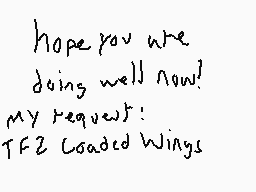 hope you are
doing well now!
my request:
TF2 Loaded Wings